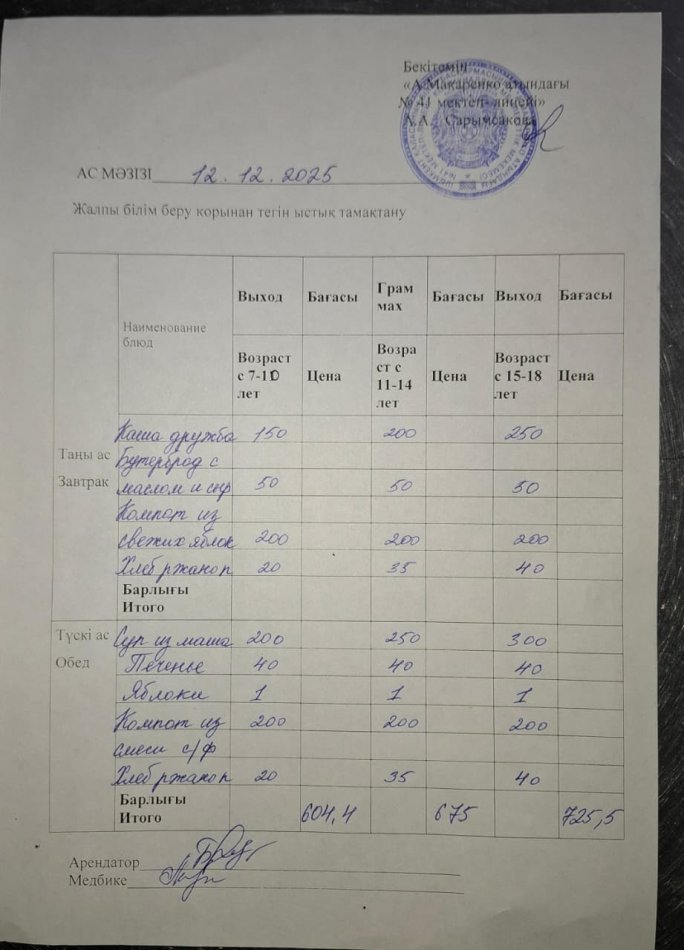 Бекітемін
«А.Макаренко атындағы
№ 41 мектеп- лицейі»
А.А. Сарымсакова
АС МӘЗІЗІ 12.12.2025
Жалпы білім беру қорынан тегін ыстық тамақтану
Наименование блюд Выход Бағасы Грам мах Бағасы Выход Бағасы
Возраст с 7-10 лет Цена Возра ст с 11-14 лет Цена Возраст с 15-18 лет Цена
Таңы ас
Завтрак
Каша дружба 150 200 250
Бутерброд с
маслом и сыр 50 50 50
Компот из
свежих яблок 200 200 200
Хлеб ржаной 20 35 40
Барлығы
Итого
Түскі ас
Обед
Суп из маша 200 250 300
Печенье 40 40 40
Яблоки 1 1 1
Компот из 200 200 200
смеси с/ф
Хлеб ржаной 20 35 40
Барлығы
Итого 604,4 675 725,5
Арендатор
Медбике